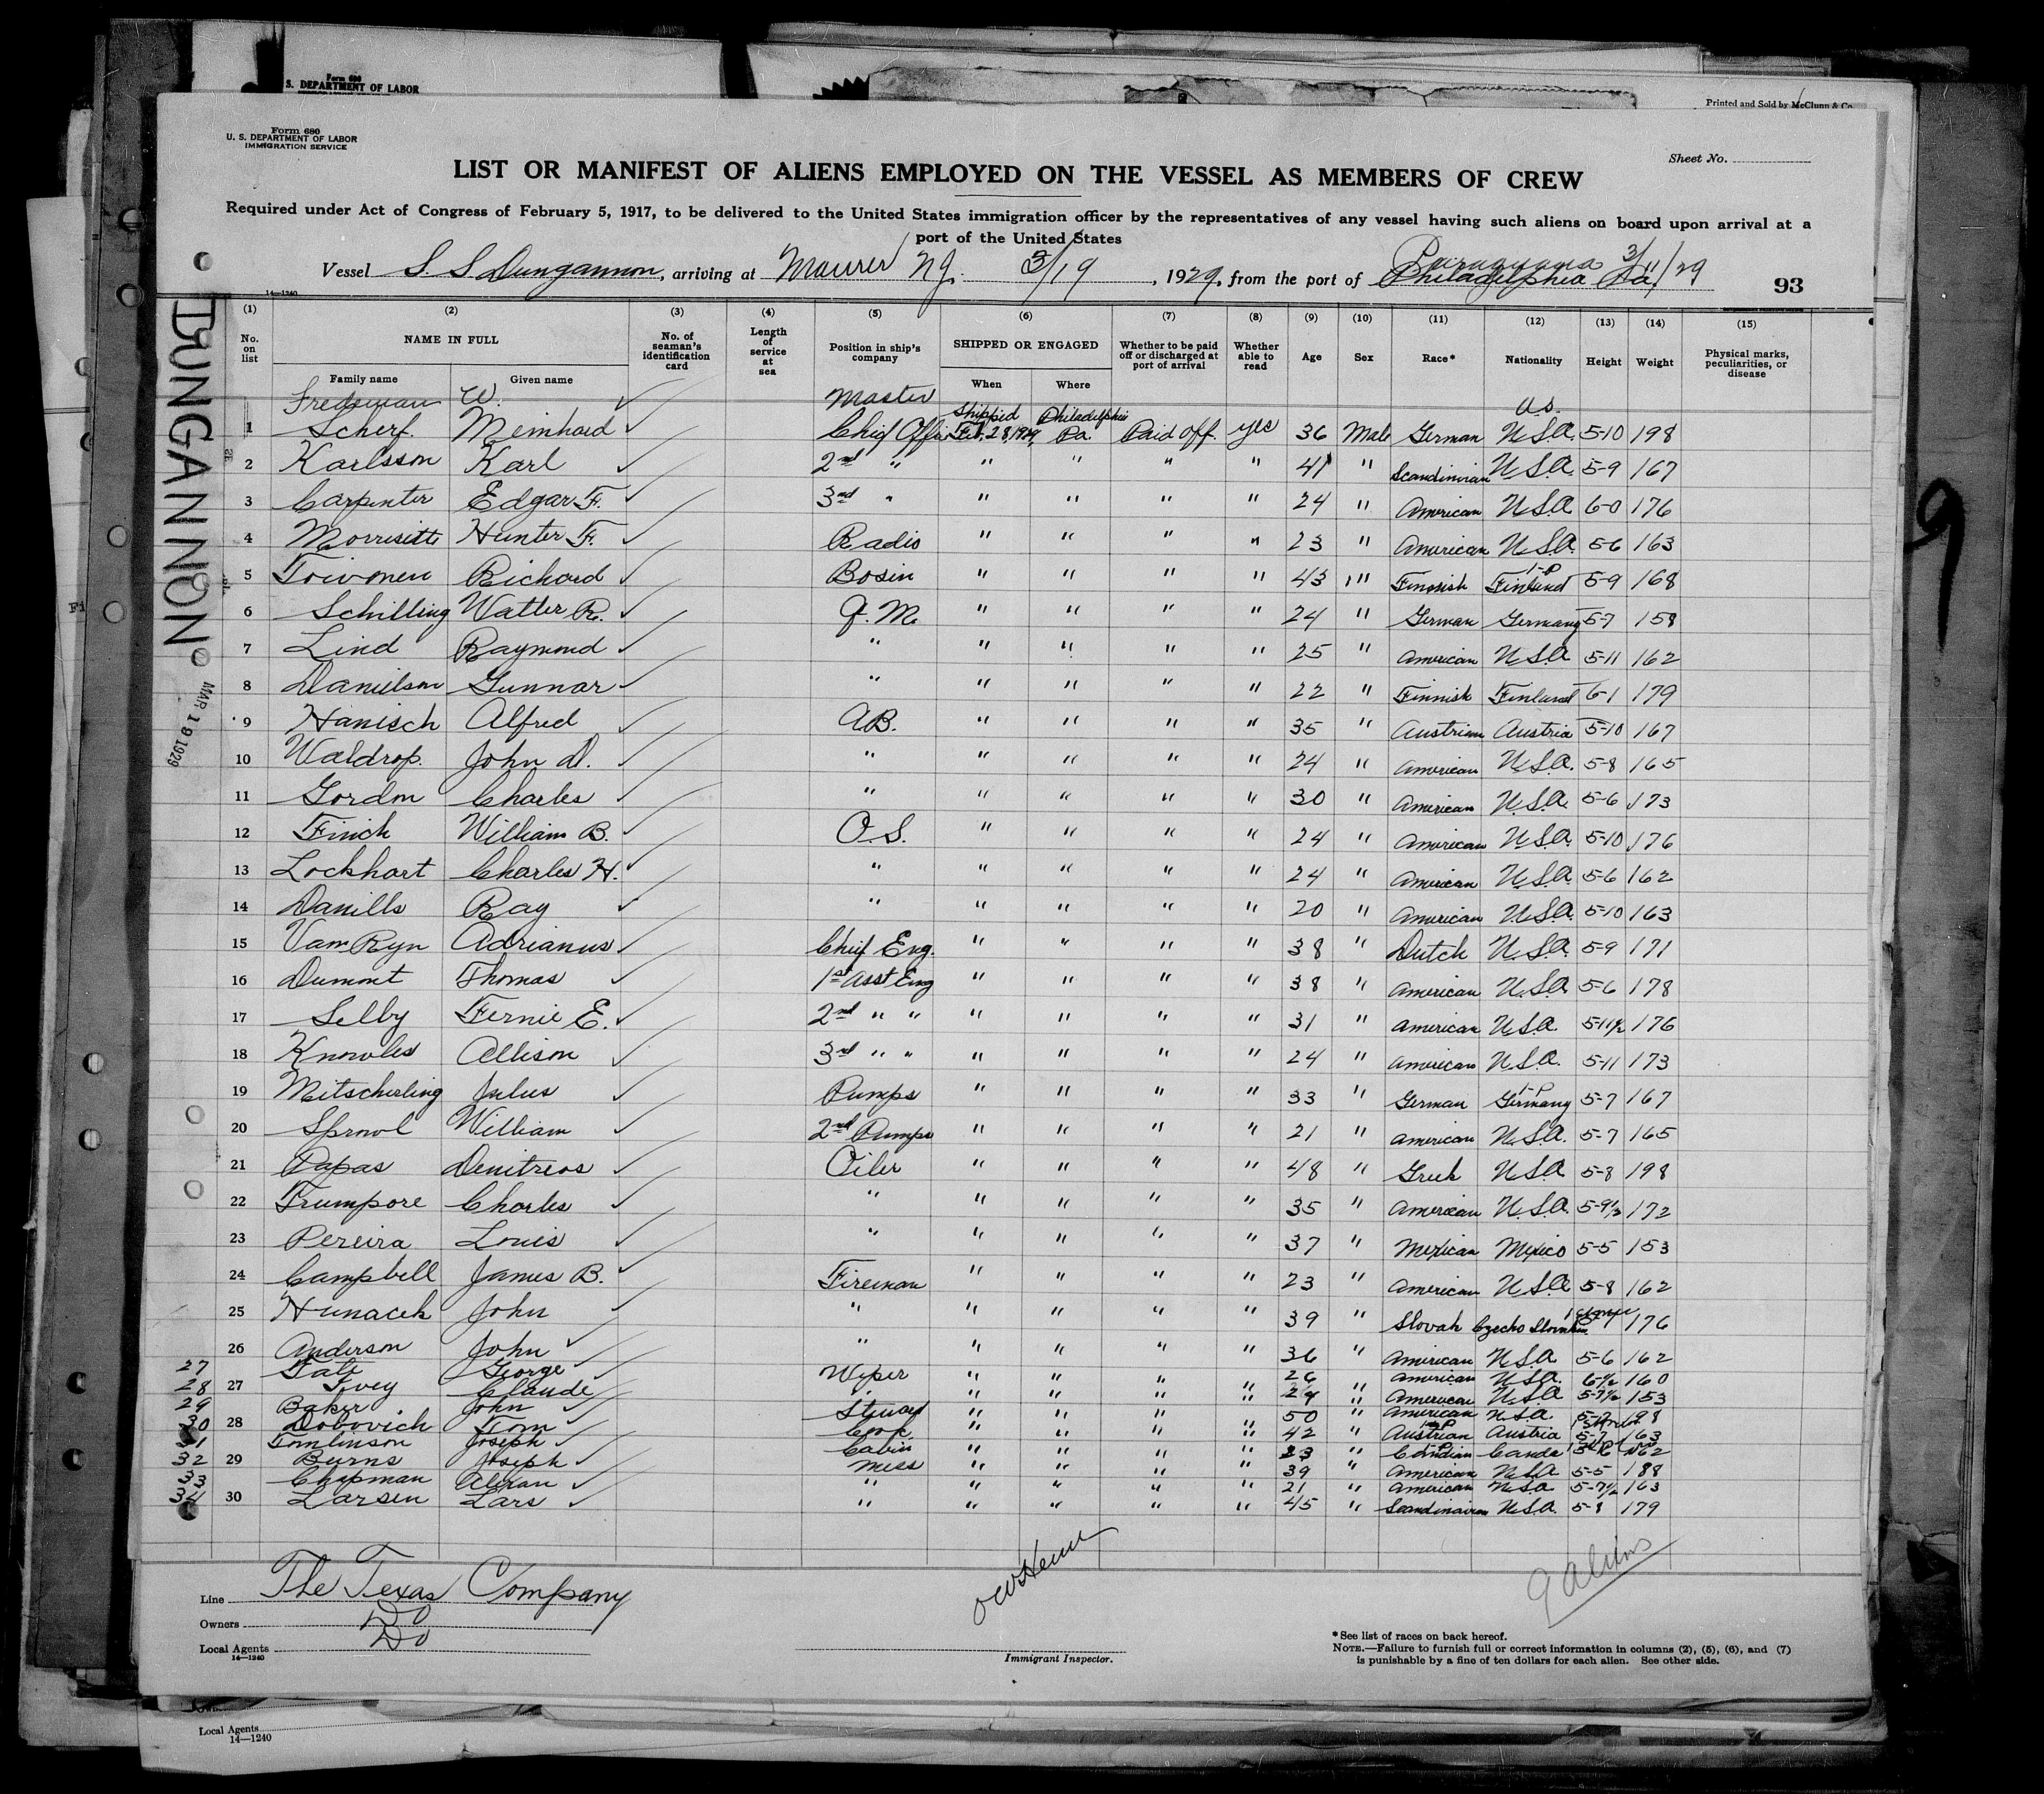 Form 680
S. DEPARTMENT OF LABOR
Printed and Sold by McClunn & Co.
Form 680
U. S. DEPARTMENT OF LABOR
IMMIGRATION SERVICE
Sheet No.
LIST OR MANIFEST OF ALIENS EMPLOYED ON THE VESSEL AS MEMBERS OF CREW
Required under Act of Congress of February 5, 1917, to be delivered to the United States immigration officer by the representatives of any vessel having such aliens on board upon arrival at a
port of the United States
Vessel S. S. Dungannon, arriving at Maurer N.J. 3/19, 1929, from the port of Philadelphia Pa. 3/11/29
93
14-1240
DUNGANNON
MAR 19 1929
9
(1) (2) (3) (4) (5) (6) (7) (8) (9) (10) (11) (12) (13) (14) (15)
No. on list NAME IN FULL No. of seaman's identification card Length of service at sea Position in ship's company SHIPPED OR ENGAGED Whether to be paid off or discharged at port of arrival Whether able to read Age Sex Race* Nationality Height Weight Physical marks, peculiarities, or disease
Family name Given name When Where
Fredeman W. Master U.S.
1 Scherf Meinhard Chief Offi Shipped Feb. 28, 1929 Philadelphia Pa. Paid off. yes 36 Male German U.S.A. 5-10 198
2 Karlsson Karl 2nd " " " " " 41 " Scandinivian U.S.A. 5-9 167
3 Carpenter Edgar F. 3rd " " " " " 24 " American U.S.A. 6-0 176
4 Morrisitte Hunter F. Radio " " " " 23 " American U.S.A. 5-6 163
5 Toivonen Richard Bosin " " " " 43 " Finnish Finland 5-9 168
6 Schilling Walter R. Q.M. " " " " 24 " German Germany 5-7 158
7 Lind Raymond " " " " " 25 " American U.S.A. 5-11 162
8 Danielson Gunnar " " " " " 22 " Finnish Finland 6-1 179
9 Hanisch Alfred A.B. " " " " 35 " Austrian Austria 5-10 167
10 Waldrop. John D. " " " " " 24 " American U.S.A. 5-8 165
11 Gordon Charles " " " " " 30 " American U.S.A. 5-6 173
12 Finch William B. O.S. " " " " 24 " American U.S.A. 5-10 176
13 Lockhart Charles H. " " " " " 24 " American U.S.A. 5-6 162
14 Daniells Ray " " " " " 20 " American U.S.A. 5-10 163
15 Van Ryn Adrianus Chief Eng. " " " " 38 " Dutch U.S.A. 5-9 171
16 Dumont Thomas 1st Asst Eng " " " " 38 " American U.S.A. 5-6 178
17 Selby Fernie E. 2nd " " " " " " 31 " American U.S.A. 5-11½ 176
18 Knowles Allison 3rd " " " " " " 24 " American U.S.A. 5-11 173
19 Mitscherling Julus Pumps " " " " 33 " German Germany 5-7 167
20 Sprowl William 2nd Pumps " " " " 21 " American U.S.A. 5-7 165
21 Papas Demitreos Oiler " " " " 48 " Greek U.S.A. 5-8 198
22 Trumpore Charles " " " " " 35 " American U.S.A. 5-9½ 172
23 Pereira Louis " " " " " 37 " Mexican Mexico 5-5 153
24 Campbell James B. Fireman " " " " 23 " American U.S.A. 5-8 162
25 Hunacek John " " " " " 39 " Slovak Czecho Slovakia 176
26 Anderson John " " " " " 36 " American U.S.A. 5-6 162
27 Tate George Wiper " " " " 26 " American U.S.A. 6-½ 160
28 27 Ivey Claude " " " " " American U.S.A. 5-7½ 153
29 Baker John Steward " " " " 50 " American U.S.A.
30 28 Dobovich Tom Cook " " " " 42 " Austrian Austria 5-7 163
31 Tomlinson Joseph Cabin " " " " 23 " Candian Canda 5-6 162
32 29 Burns Joseph Mess " " " " 39 " American U.S.A. 5-5 188
33 Chapman " " " " " 21 " American U.S.A. 5-7½ 163
34 30 Larsen Lars " " " " " 45 " Scandinavian U.S.A. 5-8 179
9 aliens
Line The Texas Company
Owners Do
Local Agents Do
14-1240
Immigrant Inspector.
*See list of races on back hereof.
NOTE.—Failure to furnish full or correct information in columns (2), (5), (6), and (7)
is punishable by a fine of ten dollars for each alien. See other side.
Local Agents
14-1240